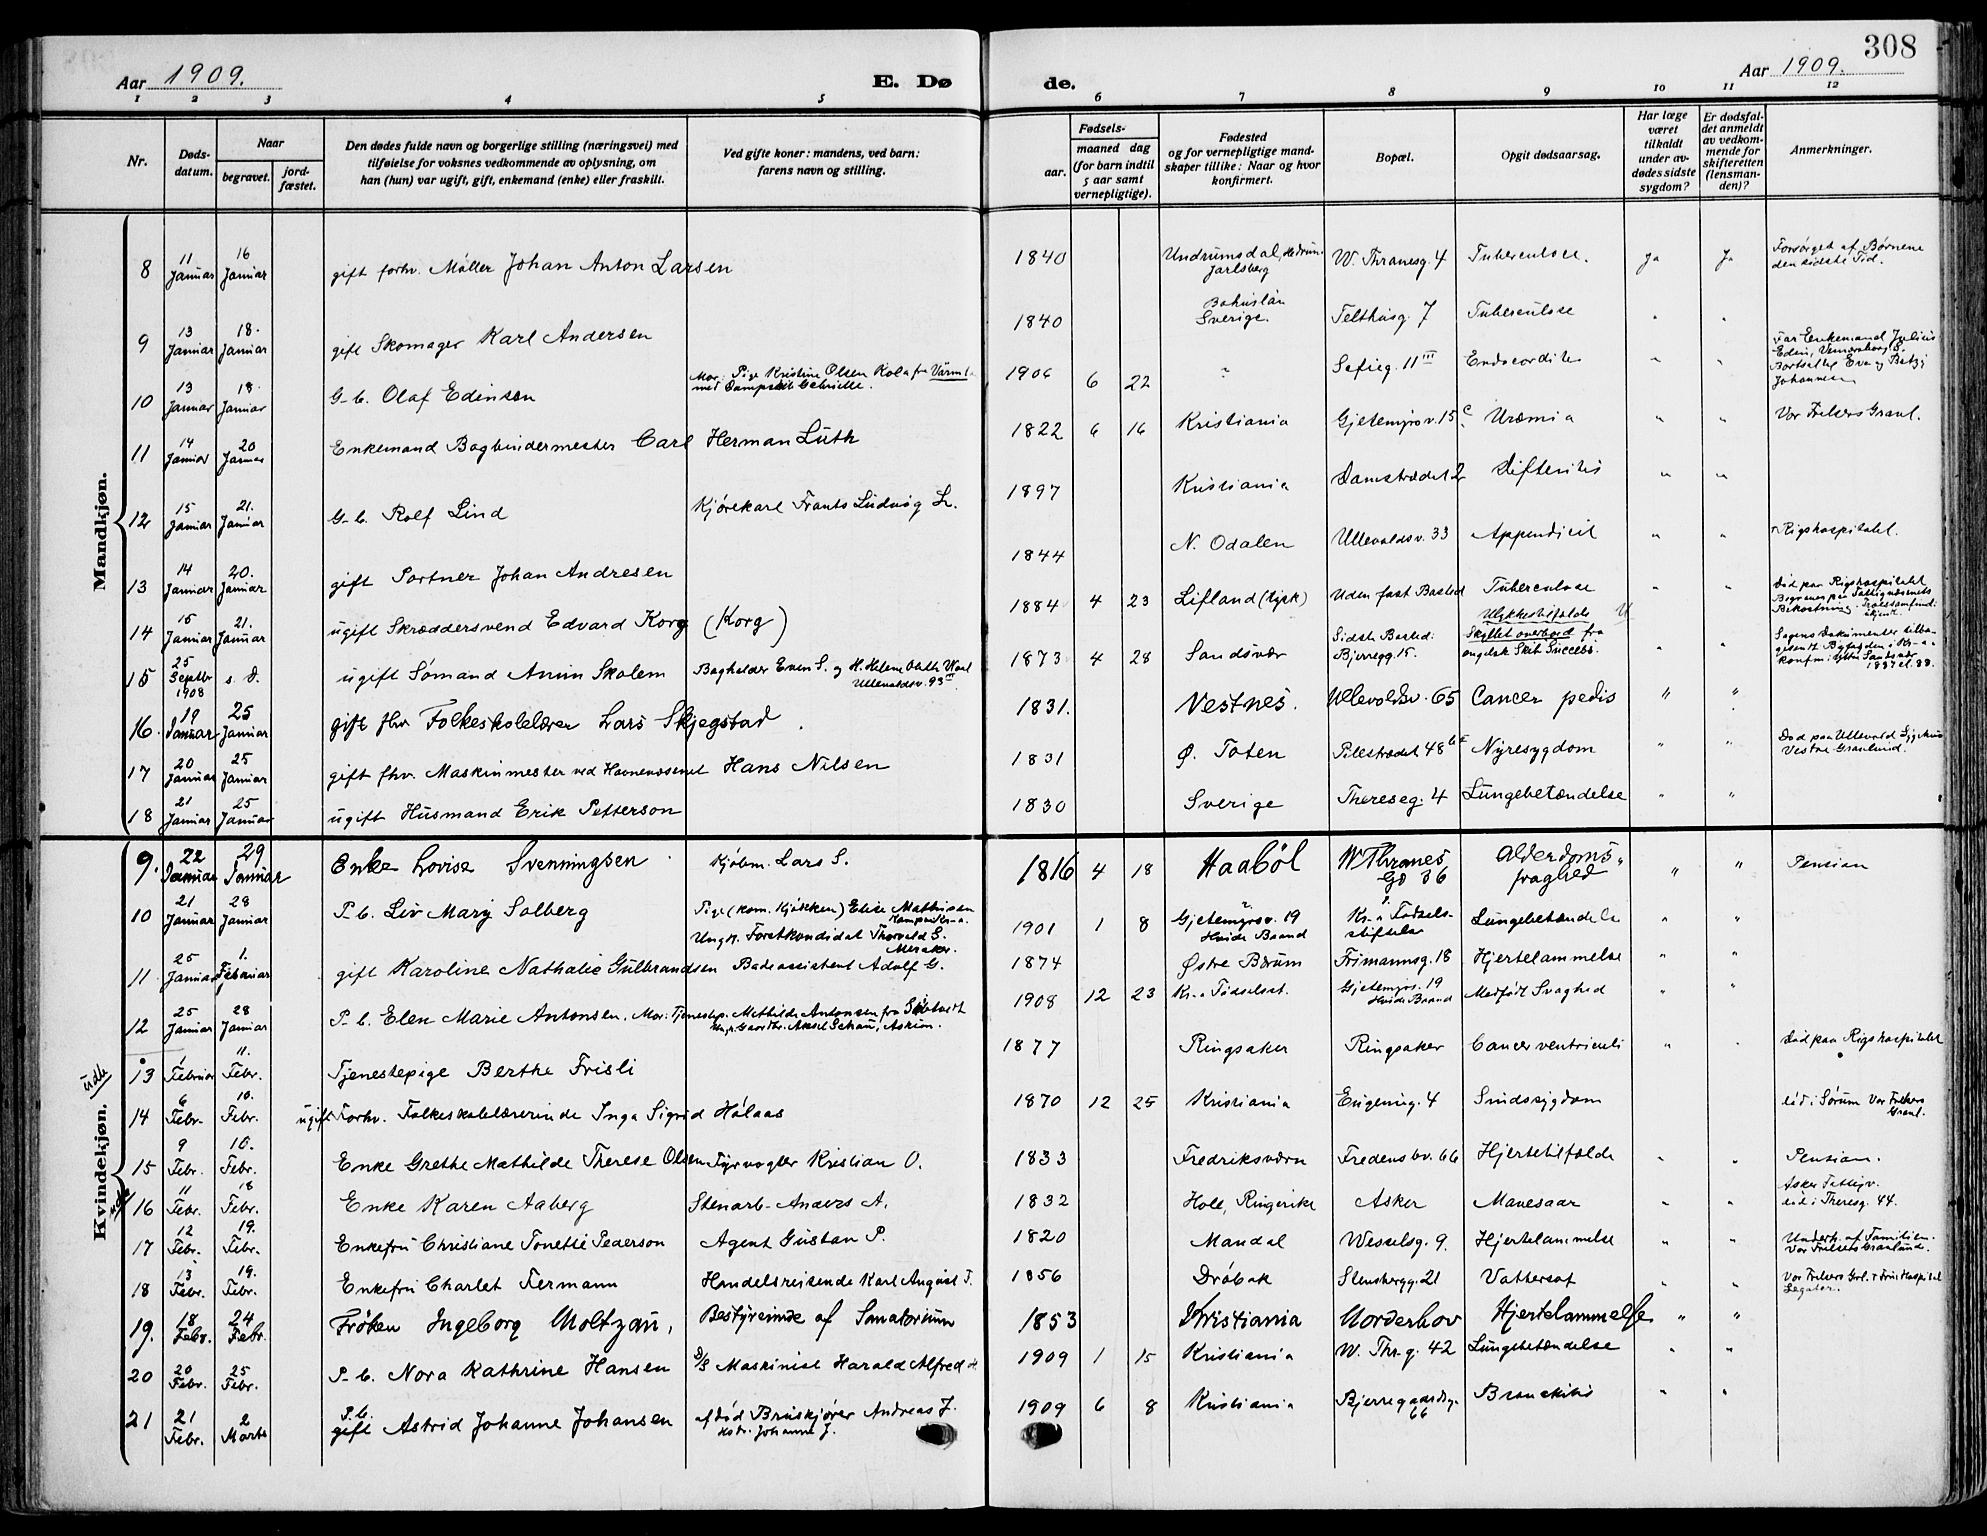 308
Aar 1909.
E. Dø
de.
Aar 1909.
1 2 3 4 5 6 7 8 9 10 11 12
Nr.
Døds-
datum.
Naar
begravet.
jord-
fæstet.
Den dødes fulde navn og borgerlige stilling (næringsvei) med
tilføielse for voksnes vedkommende av oplysning, om
han (hun) var ugift, gift, enkemand (enke) eller fraskilt.
Ved gifte koner: mandens, ved barn:
farens navn og stilling.
Fødsels-
aar.
maaned dag
(for barn indtil
5 aar samt
vernepligtige).
Fødested
og for vernepligtige mand-
skaper tillike: Naar og hvor
konfirmert.
Bopæl.
Opgit dødsaarsag.
Har læge
været
tilkaldt
under av-
dødes sidste
sygdom?
Er dødsfal-
det anmeldt
av vedkom-
mende for
skifteretten
(lensman-
den)?
Anmerkninger.
Mandkjøn.
8 11 Januar 16 Januar gift forhv. Møller Johan Anton Larsen 1840 Undrumsdal, Jarlsberg W. Thranesg. 4 Tuberculose. Ja Ja Forsørget af Børnene den sidste Tid.
9 13 Januar 18. Januar gift Skomager Karl Andersen 1840 Bohuslän Sverige. Telthusg. 7 Tuberculose " "
10 13 Januar 18. Januar G-b. Olaf Edinsen Mor: Pige Kristine Olsen Kola fra Värml. med Dampskib Gabrielle. 1906 6 22 " Sofieg. 11 III Endocordite " " Far Enkemand Edin, Bortsatte Eva og Betzy Johannesen
11 14 Januar 20 Januar Enkemand Bogbindermester Carl Herman Lüth 1822 6 16 Kristiania Gjetemyrsv. 15 c. Uræmia " " Vor Frelsers Gravl.
12 15 Januar 21. Januar G-b. Rolf Lind Kjørekarl Frants Ludvig L. 1897 Kristiania Damstrædet 2 Difteritis " "
13 14 Januar 20. Januar gift Portner Johan Andresen 1844 N. Odalen Ullevoldsv. 33 Appendicit " " Rigshospitalet.
14 15 Januar 21. Januar ugift Skræddersvend Edvard Korg (Korg) 1884 4 23 Lifland (tysk) Uden fast Bosted Tuberculose " " Død paa Rigshospitalet Begraves paa Fattigvæsenets Bekostning.
15 25 Septbr 1908 s. d. ugift Sømand Anun Skolem Bogholder Even S. og H. Helem Ullevoldsv. 93 III. 1873 4 28 Sandsvær Sidste Bosted: Bjerregg. 15. Ulykkestilfælde Skyllet overbord fra engelsk Skib Success. " Sagens Dokumenter
16. 19 Januar 25 Januar gift fhv Folkeskolelærer Lars Skjegstad. 1831. Vestnes. Ullevoldsv. 65 Cancer pedis " "
17 20 Januar 25 Januar gift fhv. Maskinmester ved Havnevæsenet Hans Nilsen 1831 Ø. Toten Pilestrædet 48 Nyresygdom " " Død paa Ullevold Sygehus Vestre Gravlund.
18 21 Januar 25 Januar ugift Husmand Erik Petterson 1830 Sverige Thereseg. 4 Lungebetændelse " "
Kvindekjøn.
9. 22 Januar 29 Januar Enke Lovise Svenningsen Kjøbm. Lars S. 1816 4 18 Haabøl W Thranes Gd 36 Alderdoms- fraghed " " Pension
10 21 Januar 28 Januar P. b. Liv Mary Solberg Pige (kom. Kjøkken) Elise Mathisen Ungk. Forstkandidat Thorvald S. Meraker. 1901 1 8 Gjetemyrsv. 19 Hvide Baand Kr-a Fødsels- stiftelse Lungebetændelse " "
11. 25 Januar 1. Februar gift Karoline Nathalie Gulbrandsen Badeassistent Adolf G. 1874 Østre Bærum Frimannsg. 18 Hjertelammelse " "
12 25 Januar 28 Januar P. b. Elen Marie Antonsen. Mor: Tjenestep. Mathilde Antonsen fra Aksel Schau, Askim. 1908 12 23 Kr-a Fødselsst. Gjetemyrsv. 19 Hvide Baand Medfødt Svaghed " "
13 1 Februar 11. Febr. Tjenestepige Berthe Frisli 1877 Ringsaker Ringsaker Cancer ventriculi " . Død paa Rigshospitalet
14 6 Febr. 10. Febr. ugift Forhv. Folkeskolelærerinde Inga Sigrid Hølaas 1870 12 25 Kristiania Eugenieg. 4 Sindssygdom død i Sørum Vor Frelsers Gravl.
15 9 Febr. 15. Febr. Enke Grethe Mathilde Therese Olsen Fyrvogter Kristian O. 1833 Fredriksværn Fredensbv. 66 Hjertetilfælde " " Pension.
16 11 Febr. 18 Febr. Enke Karen Aaberg Stenarb. Anders A. 1832 Hole, Ringerike Asker Mavesaar " " Asker Fattigv. død i Theresg. 44.
17 12 Febr. 19. Febr. Enkefru Christiane Tonette Pederson Agent Gustav P. 1820 Mandal Wesselsg. 9. Hjertelammelse " " Underh. af Familien. Vor Frelsers Gravlund.
18 13 Febr. 19. Febr. Enkefru Charlot Fermann Handelsreisende Karl August F. 1856 Drøbak Stensbergg. 21 Vattersot " " Vor Frelsers Grl. Legater.
19. 18 Febr. 24 Febr. Frøken Ingeborg Moltzau, Bestyrerinde af Sanatorium 1853 Kristiania Norderhov Hjertelammelse " "
20 20 Febr. 25 Febr. P. b. Nora Kathrine Hansen D/S Maskinist Harald Alfred H 1909 1 15 Kristiania W. Thr. g. 42 Lungebetændelse " "
21 21 Febr. 2 Marts P. b. gift Astrid Johanne Johansen afdød Bruskjører Andreas J. Hstr. Johanne J. 1909 6 8 Kristiania Bjerregaardsg. 66 Bronchitis " "